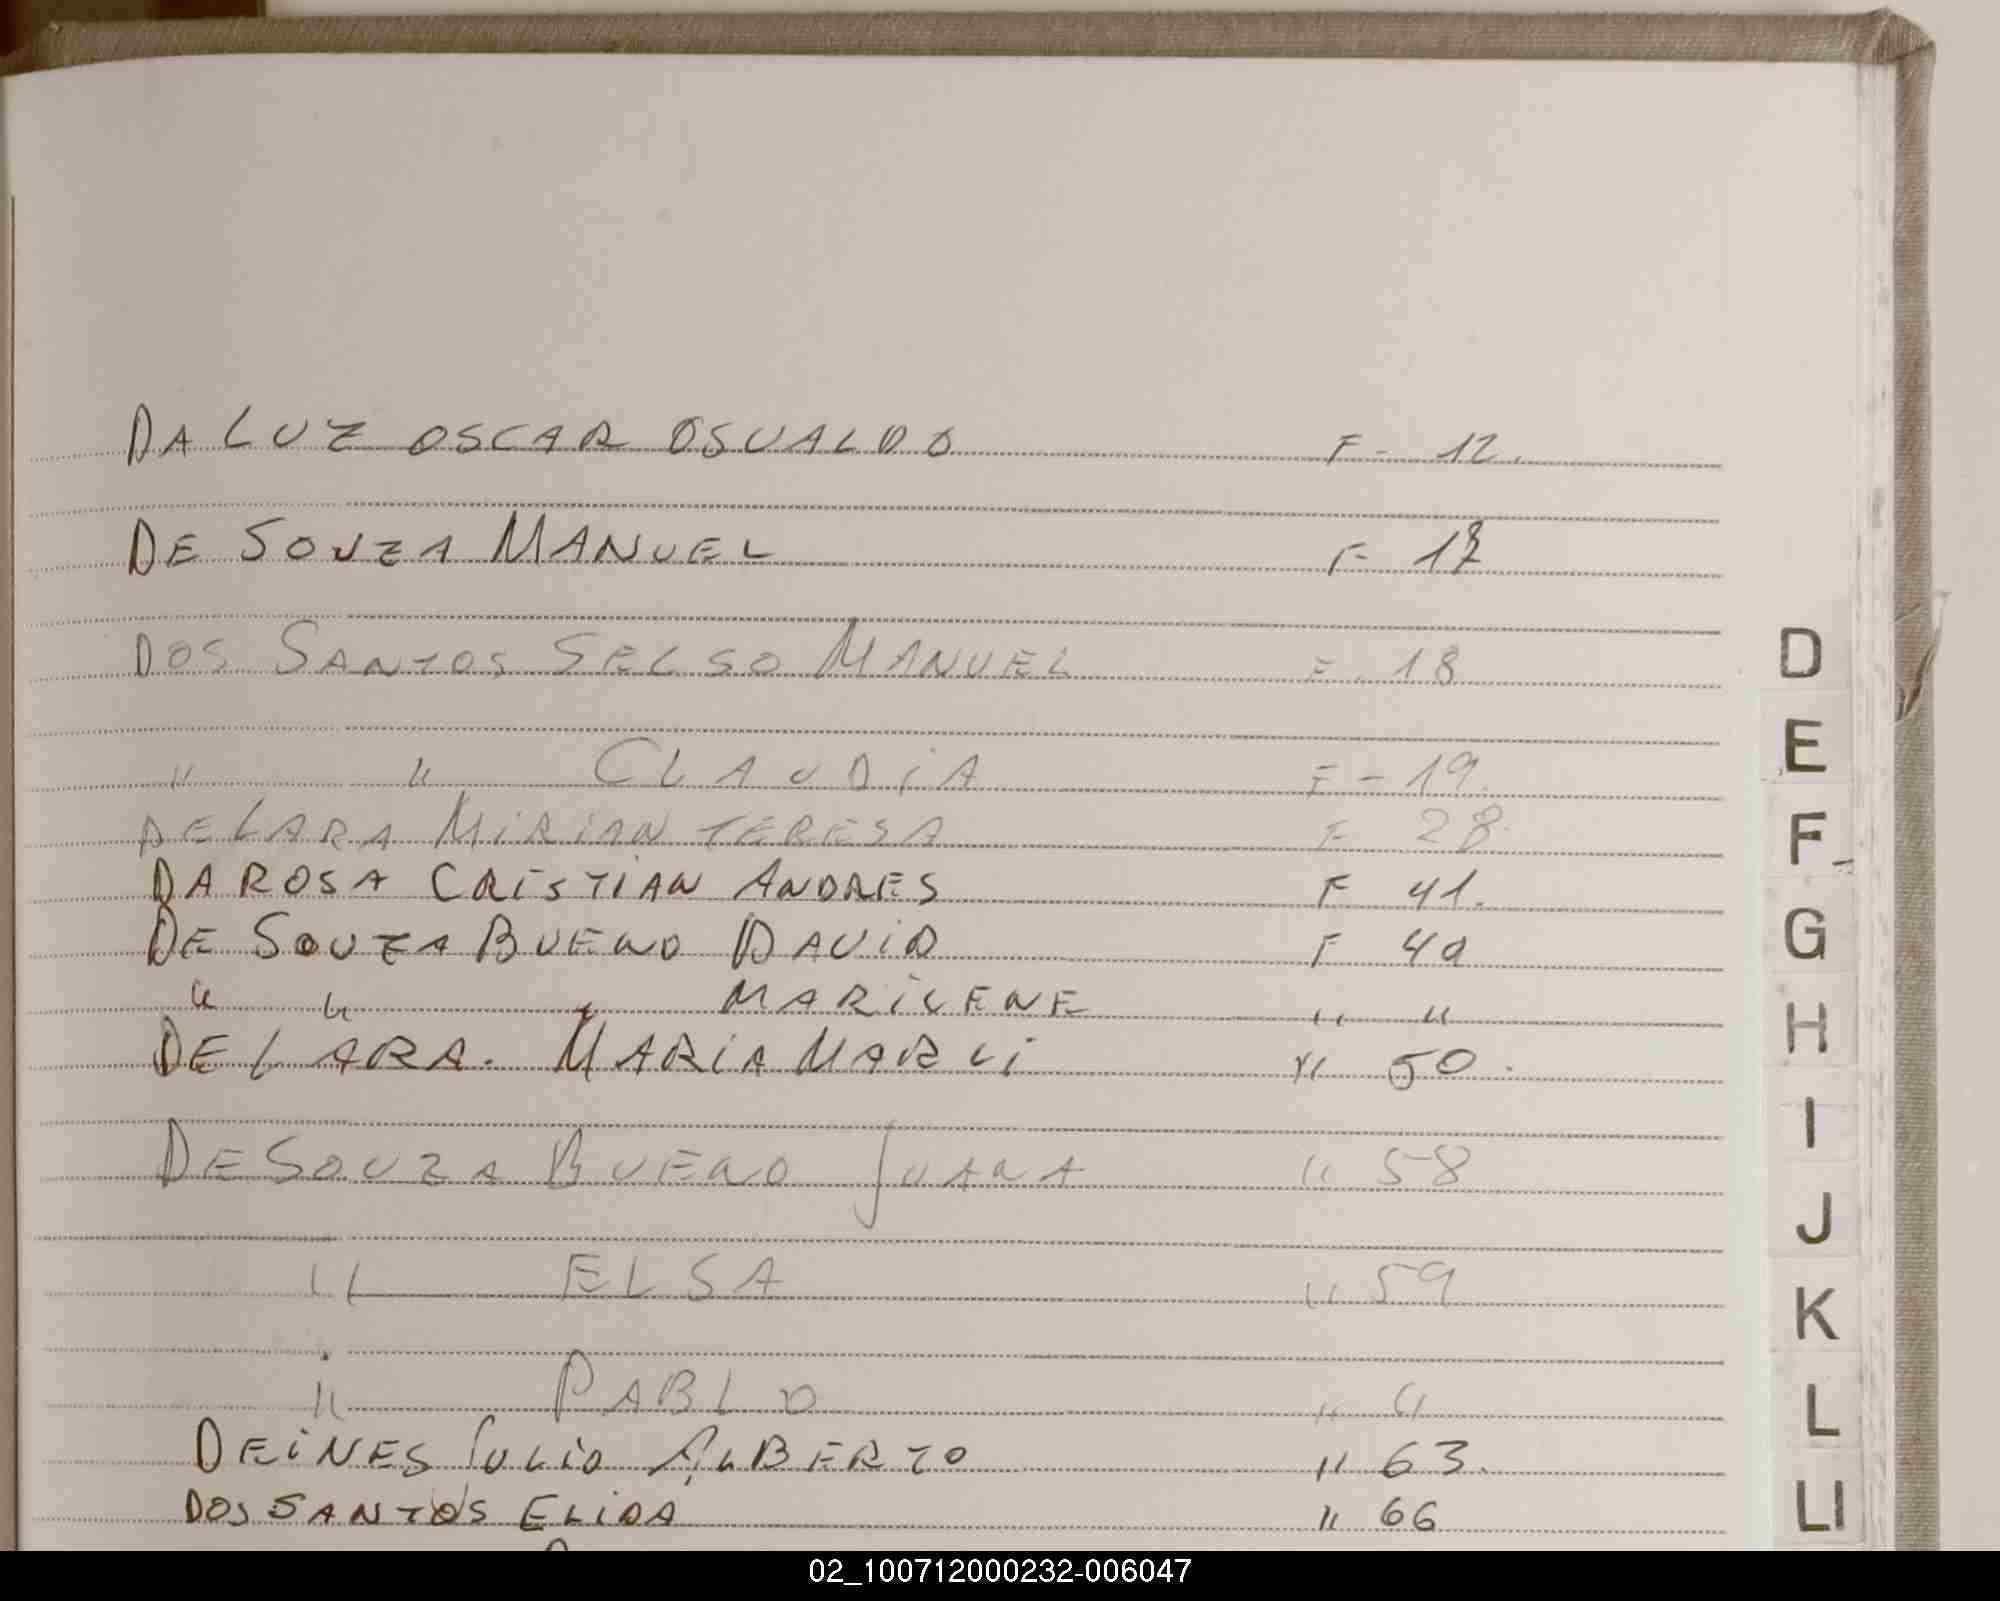 DA LUZ OSCAR OSVALDO F - 12.
DE SOUZA MANUEL F
DOS SANTOS SELSO MANUEL F. 18
" " CLAUDIA F - 19.
DE LARA MIRIAN TERESA F 28.
DA ROSA CRISTIAN ANDRES F 41.
DE SOUZA BUENO DAVID F 49
" " " MARILENE " "
DE LARA. MARIA MARLI " 50.
DE SOUZA BUENO JUANA " 58
" ELSA " 59
" PABLO " "
DEINES JULIO ALBERTO " 63.
DOS SANTOS ELIDA " 66
D
E
F
G
H
I
J
K
L
LL
02_100712000232-006047